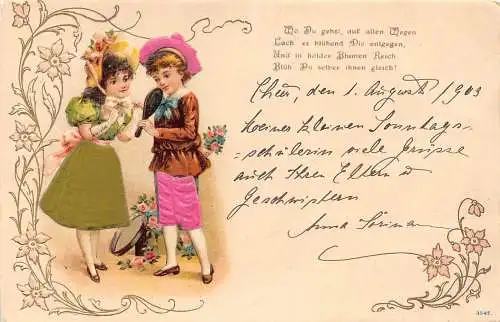 Wo Du gehst, auf allen Wegen
Lach es blühend Dir entgegen,
Und in holder Blumen Reich
Blüh Du selber ihnen gleich!
Chur, den 1. August 1903
Meiner kleinen Sonntags-
=schülerin viele Grüsse
auch Ihren Eltern &
Geschwistern
Anna
3547.